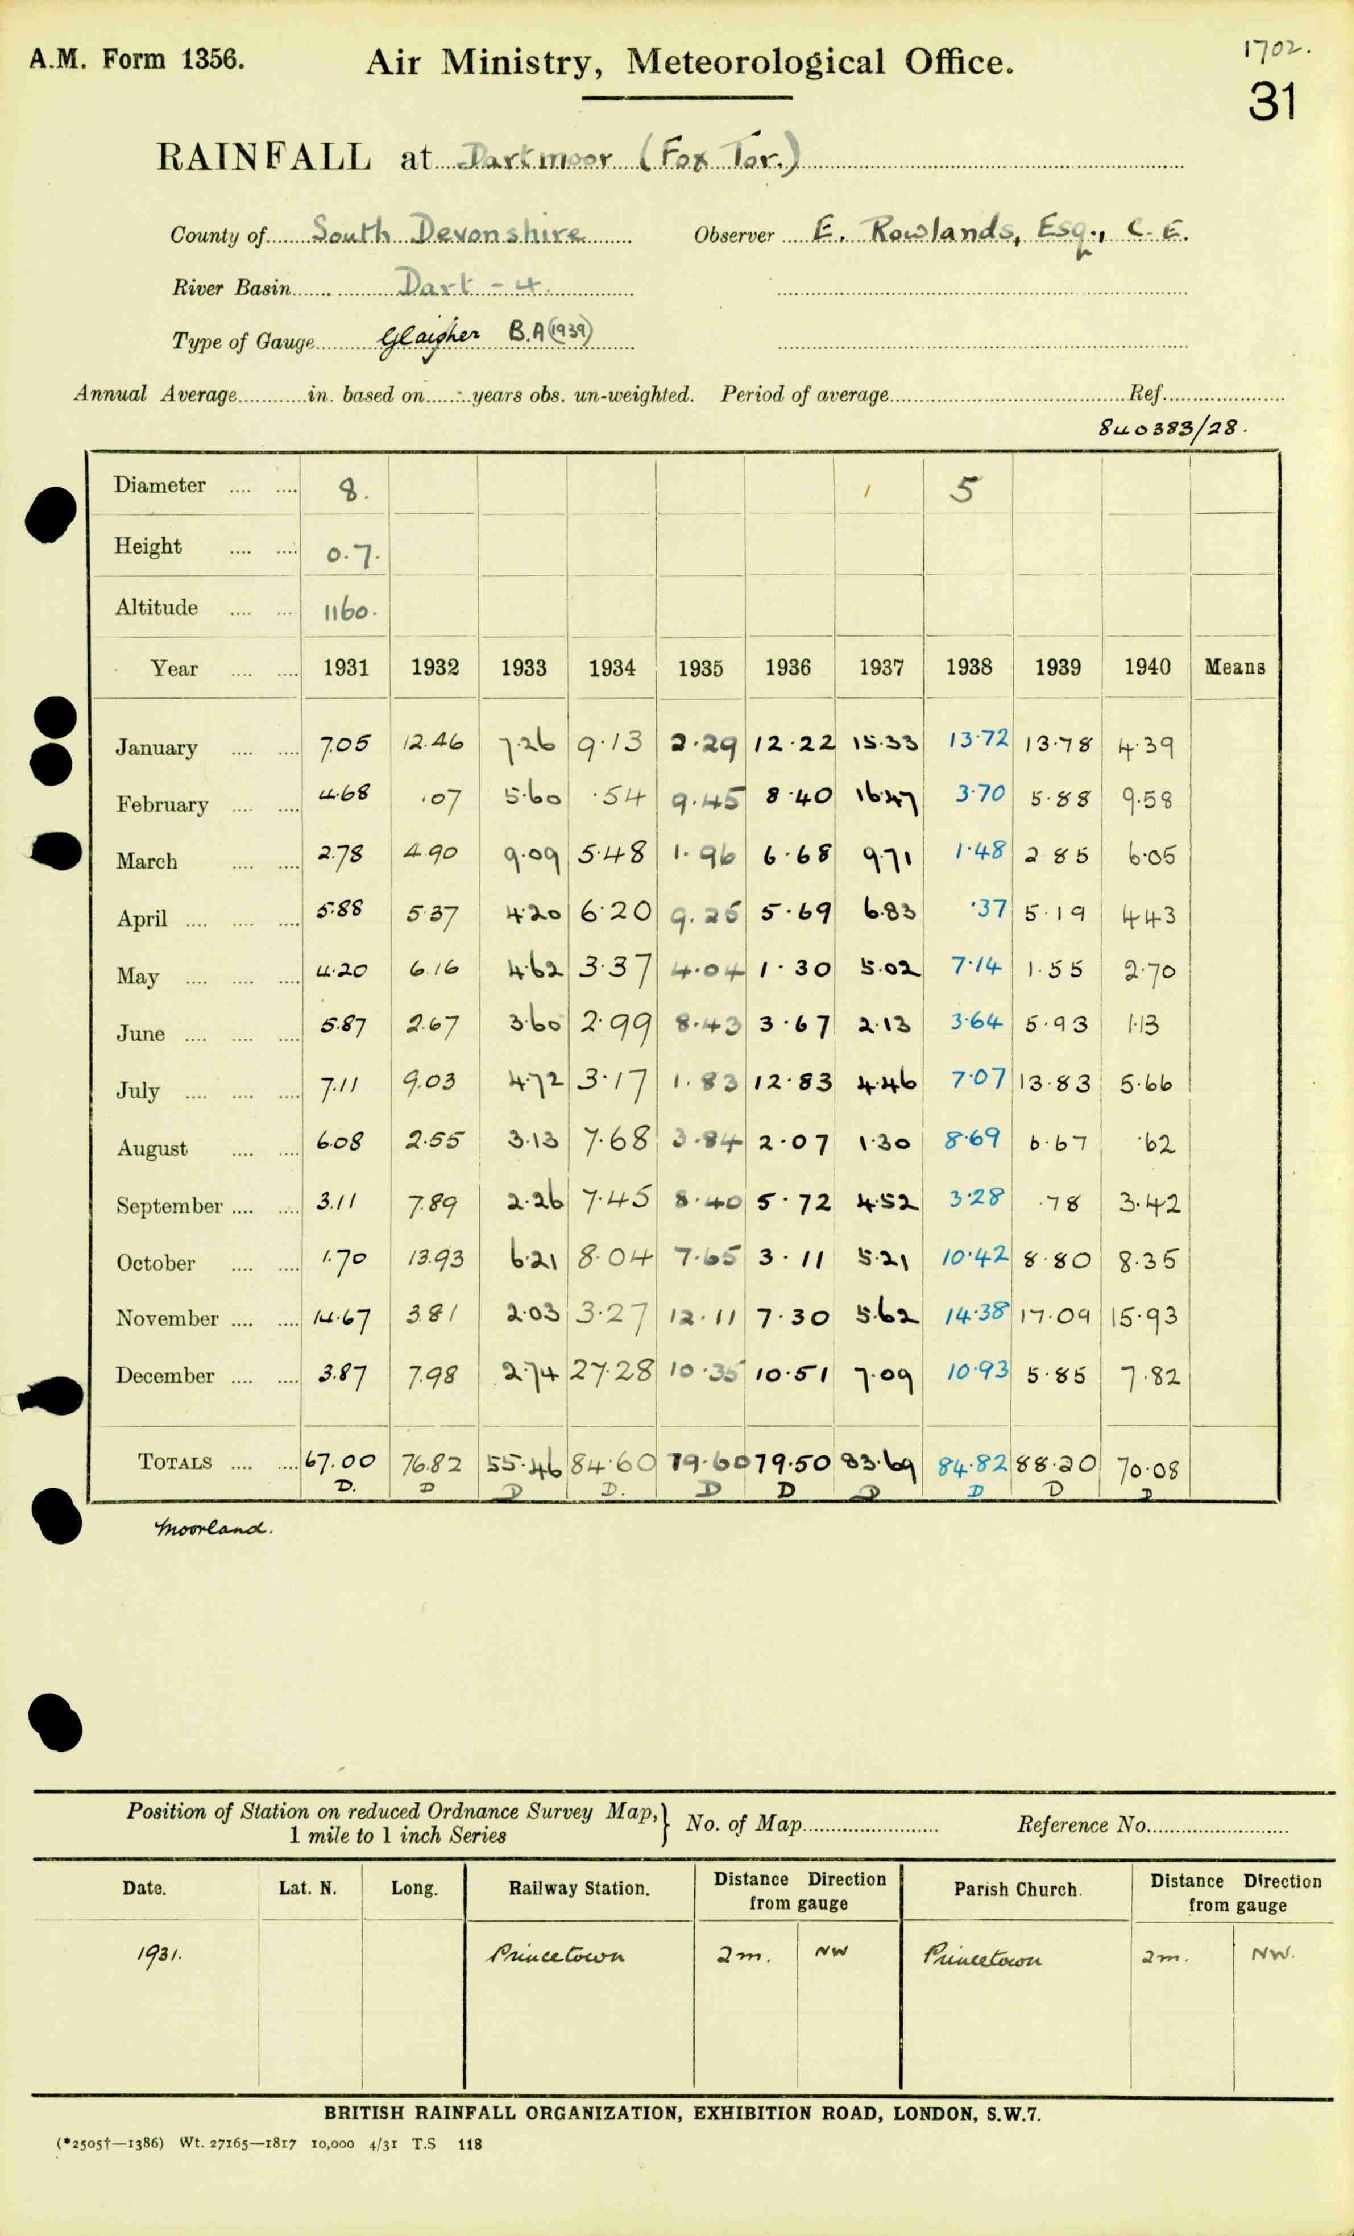 A.M. Form 1356.
Air Ministry, Meteorological Office.
1702.
31
RAINFALL at Dartmoor (Fox Tor.)
County of South Devonshire Observer E. Rowlands, Esq., C.E.
River Basin Dart - 4.
Type of Gauge Glaisher B.A (1939)
Annual Average in. based on years obs. un-weighted. Period of average Ref.
840383/28.
Diameter 8. 5
Height 0.7.
Altitude 1160.
Year 1931 1932 1933 1934 1935 1936 1937 1938 1939 1940 Means
January 7.05 12.46 7.26 9.13 2.29 12.22 15.33 13.72 13.78 4.39
February 4.68 .07 5.60 .54 9.45 8.40 16.47 3.70 5.88 9.58
March 2.78 4.90 9.09 5.48 1.96 6.68 9.71 1.48 2.85 6.05
April 5.88 5.37 4.20 6.20 9.25 5.69 6.83 .37 5.19 4.43
May 4.20 6.16 4.62 3.37 4.04 1.30 5.02 7.14 1.55 2.70
June 5.87 2.67 3.60 2.99 8.43 3.67 2.13 3.64 5.93 1.13
July 7.11 9.03 4.72 3.17 1.83 12.83 4.46 7.07 13.83 5.66
August 6.08 2.55 3.13 7.68 3.84 2.07 1.30 8.69 6.67 .62
September 3.11 7.89 2.26 7.45 8.40 5.72 4.52 3.28 .78 3.42
October 1.70 13.93 6.21 8.04 7.65 3.11 5.21 10.42 8.80 8.35
November 14.67 3.81 2.03 3.27 12.11 7.30 5.62 14.38 17.09 15.93
December 3.87 7.98 2.74 27.28 10.35 10.51 7.09 10.93 5.85 7.82
TOTALS 67.00 76.82 55.46 84.60 79.60 79.50 83.69 84.82 88.20 70.08
D. D D D. D D D D D D
Moorland.
Position of Station on reduced Ordnance Survey Map,} No. of Map Reference No.
1 mile to 1 inch Series
Date. Lat. N. Long. Railway Station. Distance Direction from gauge Parish Church. Distance Direction from gauge
1931. Princetown 2m. NW Princetown 2m. NW.
BRITISH RAINFALL ORGANIZATION, EXHIBITION ROAD, LONDON, S.W.7.
(*2505†—1386) Wt. 27165—1817 10,000 4/31 T.S 118